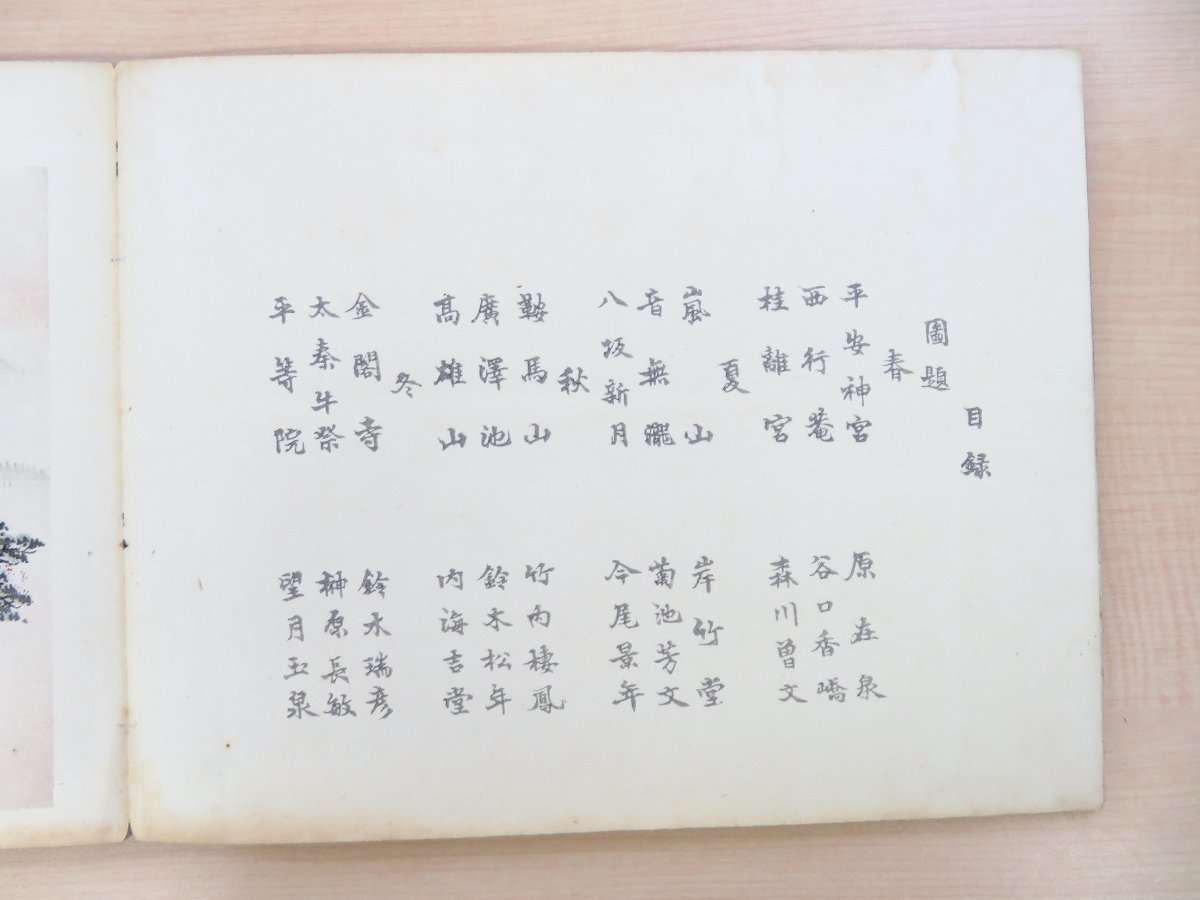 目録
圖題
春
平安神宮 原在泉
西行菴 谷口香嶠
桂離宮 森川曽文
夏
嵐山 岸竹堂
音無瀧 菊池芳文
八坂新月 今尾景年
秋
鞍馬山 竹内棲鳳
廣澤池 鈴木松年
高雄山 内海吉堂
冬
金閣寺 鈴木瑞彦
太秦牛祭 榊原長敏
平等院 望月玉泉